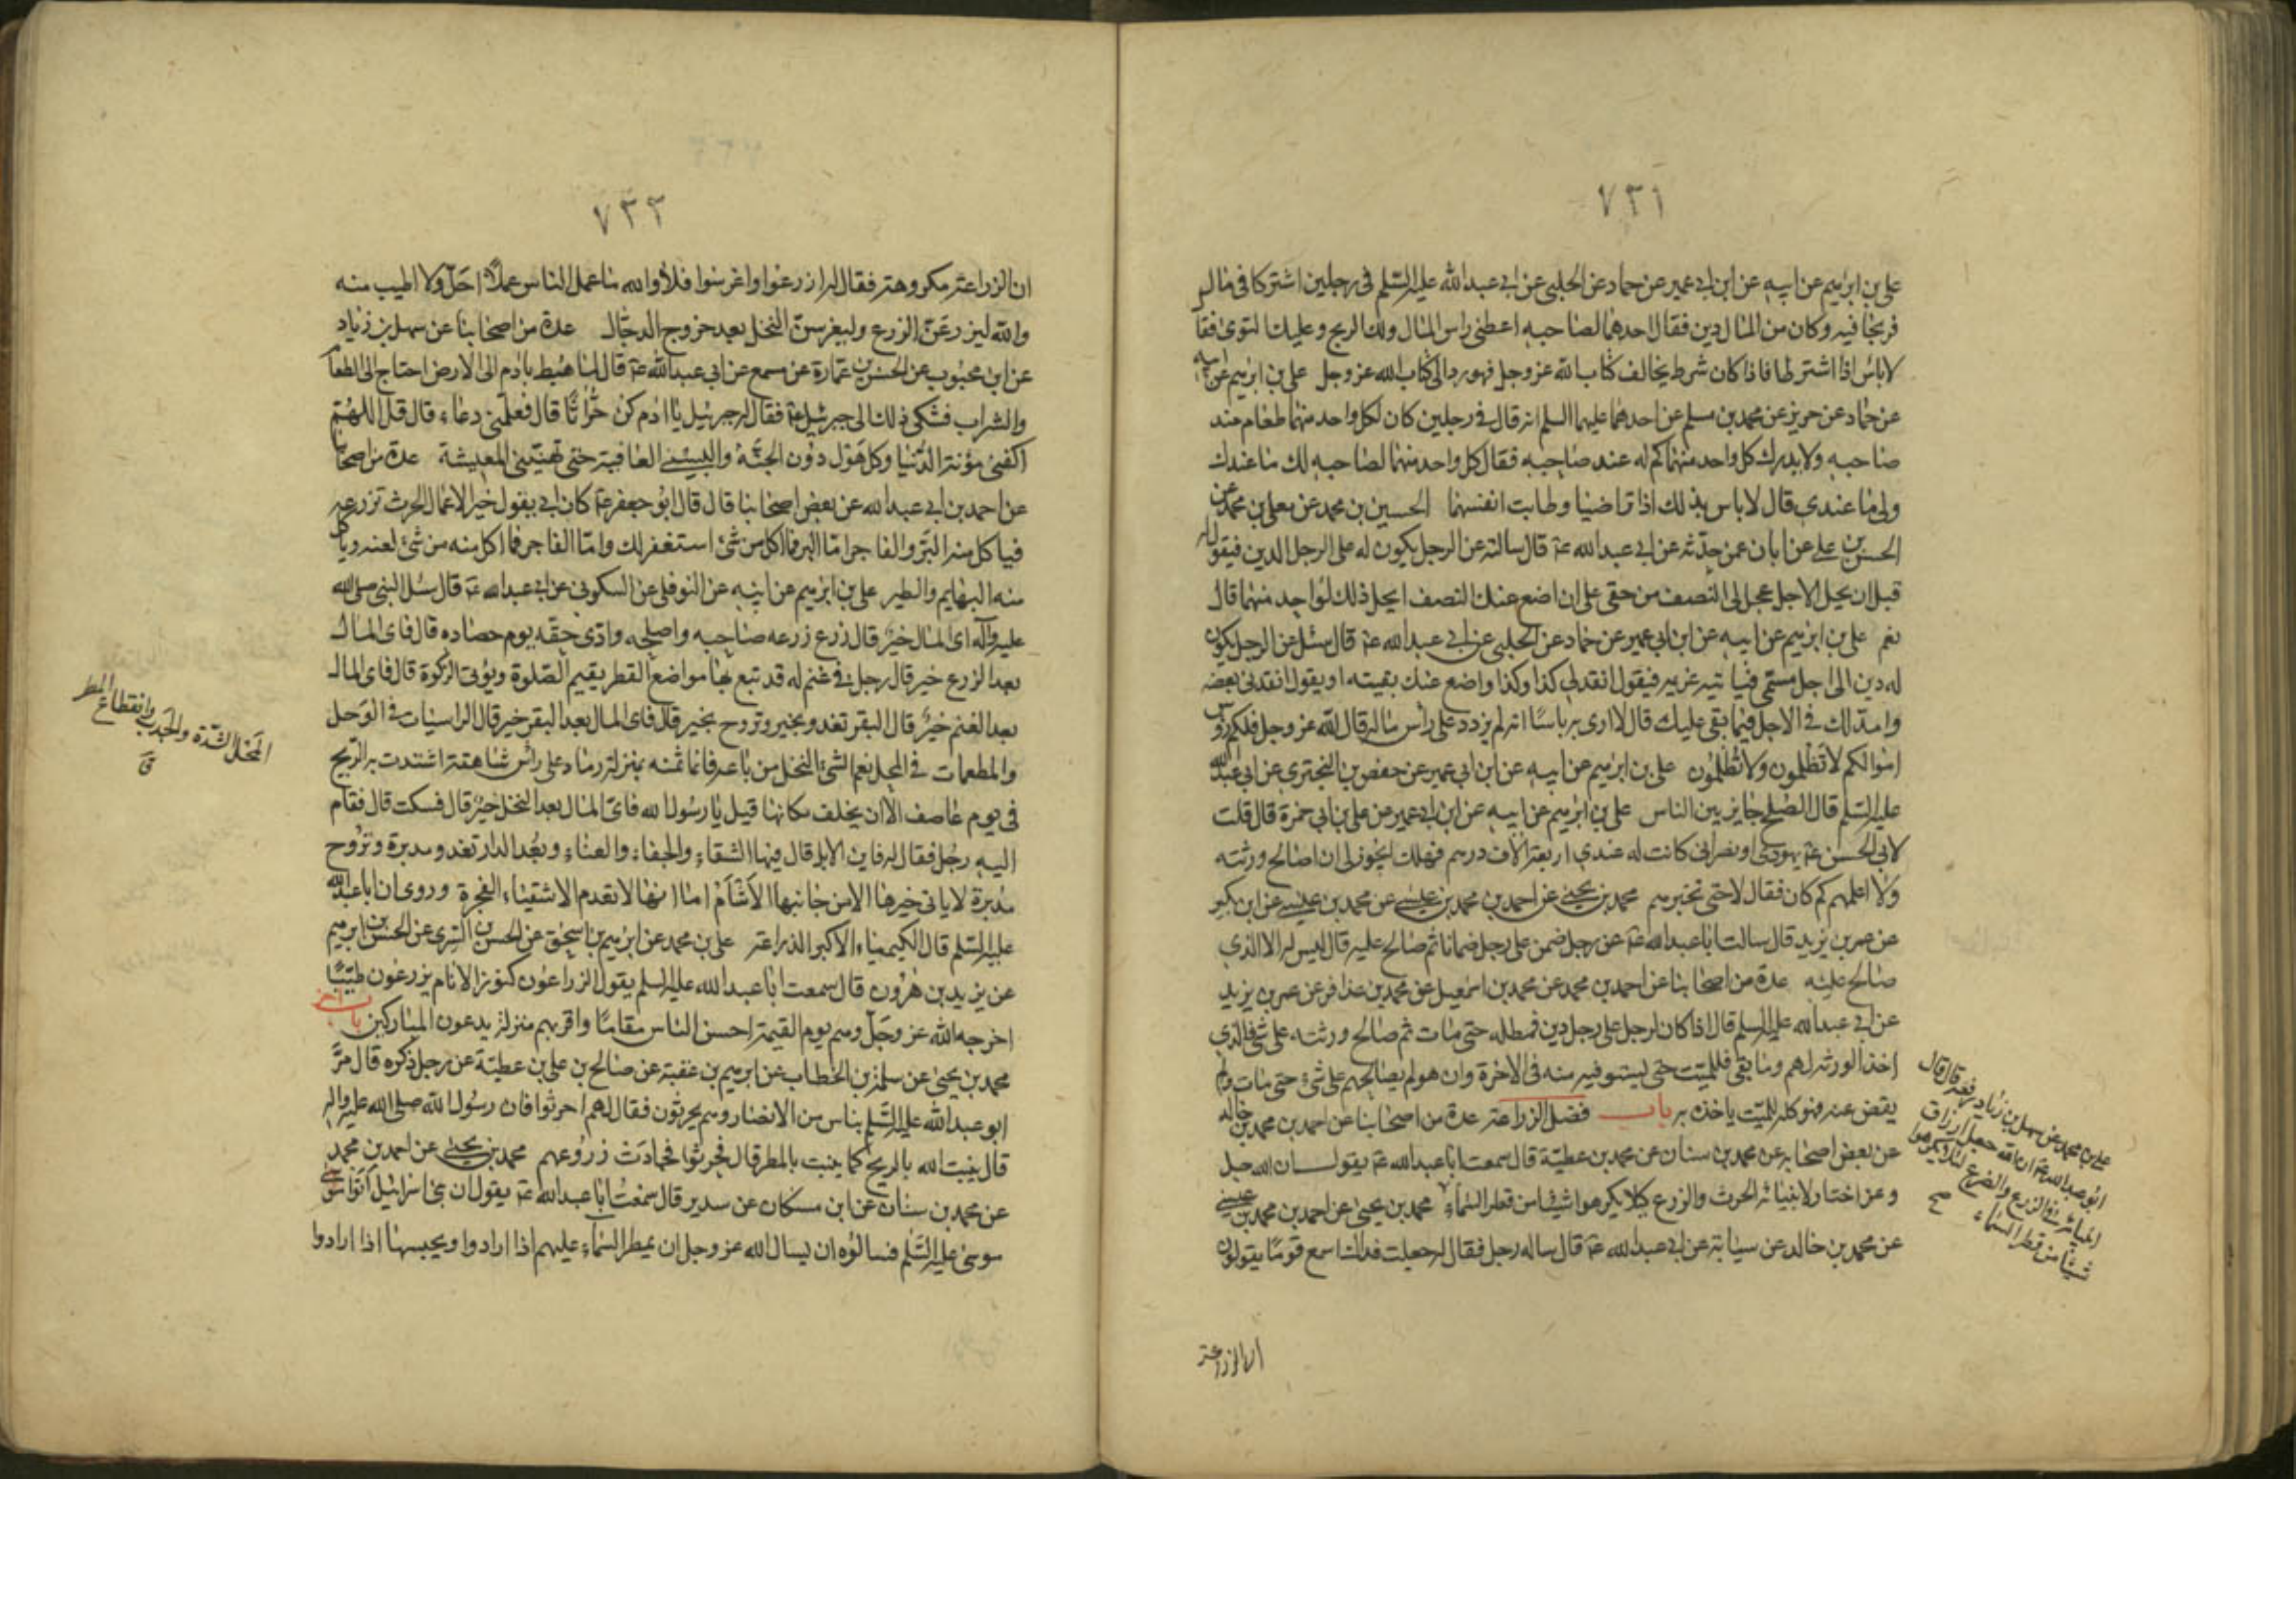 ٧٣١
علي بن ابرهيم عن ابيه عن ابن ابي عمير عن حماد عن الحلبي عن ابي عبد الله عليه السلم في رجلين اشتركا في مال
فربحا فيه وكان من المال دين فقال احدهما لصاحبه اعطني راس المال ولك الربح وعليك التوى فقا
لاباس اذا اشترطا فاذا كان شرط يخالف كتاب الله عز وجل فهو رد الى كتاب الله عز وجل علي بن ابرهيم عن ابيه
عن حماد عن حريز عن محمد بن مسلم عن احدهما عليهما السلم انه قال في رجلين كان لكل واحد منهما طعام عند
صاحبه ولا يدرك كل واحد منهما كم له عند صاحبه فقال كل واحد منهما لصاحبه لك ما عندك
ولي ما عندي قال لا باس بذلك اذا تراضيا وطابت انفسهما الحسين بن محمد عن معلى بن محمد عن
الحسن بن علي عن ابان عمن حدثه عن ابي عبد الله عۃ قال سالته عن الرجل يكون له على الرجل الدين فيقول له
قبل ان يحل الاجل عجل لي النصف من حقي على ان اضع عنك النصف ايحل ذلك لواحد منهما قال
نعم علي بن ابرهيم عن ابيه عن ابن ابي عمير عن حماد عن الحلبي عن ابي عبد الله عۃ قال سئل عن الرجل يكون
له دين الى اجل مسمى فياتيه غريمه فيقول انقد لي كذا وكذا واضع عنك بقيته او يقول انقدني بعضه
وامد لك في الاجل فيما بقي عليك قال لا ارى به باسا انه لم يزدد على راس ماله قال الله عز وجل فلكم رؤس
اموالكم لا تظلمون ولا تظلمون علي بن ابرهيم عن ابيه عن ابن ابي عمير عن حفص بن البختري عن ابي عبد الله
عليه السلم قال الصلح جايز بين الناس علي بن ابرهيم عن ابيه عن ابن ابي عمير عن علي بن ابي حمزة قال قلت
لابي الحسن عۃ يهودي او نصراني كانت له عندي اربعة الاف درهم فهلك ايجوز لي ان اصالح ورثته
ولا اعلمهم كم كان فقال لا حتى تخبرهم محمد بن يحيى عن احمد بن محمد بن عيسى عن محمد بن عيسى عن ابن بكير
عن عمر بن يزيد قال سالت ابا عبد الله عۃ عن رجل ضمن على رجل ضمانا ثم صالح عليه قال ليس له الا الذي
صالح عليه عدة من اصحابنا عن احمد بن محمد عن محمد بن اسمعيل عن محمد بن عذافر عن عمر بن يزيد
عن ابي عبد الله عليه السلم قال اذا كان لرجل على رجل دين فمطله حتى مات ثم صالح ورثته على شئ فالذي
اخذ الورثة لهم وما بقي فللميت حتى يستوفيه منه في الاخرة وان هو لم يصالحهم على شئ حتى مات ولم
يقض عنه فهو كله للميت ياخذه به باب فضل الزراعة عدة من اصحابنا عن احمد بن محمد بن خالد
عن بعض اصحابه عن محمد بن سنان عن محمد بن عطية قال سمعت ابا عبد الله عۃ يقول ان الله جل
وعز اختار لانبيائه الحرث والزرع كيلا يكرهوا شيئا من قطر السماء محمد بن يحيى عن احمد بن محمد بن عيسى
عن محمد بن خالد عن سيابة عن ابي عبد الله عۃ قال ساله رجل فقال له جعلت فداك اسمع قوما يقولون
علي بن محمد عن سهل بن زياد رفعه قال قال
ابو عبد الله عۃ ان الله جعل ارزاق
انبيائه في الزرع والضرع لئلا يكرهوا
شيئا من قطر السماء صح
ان الزراعة
٧٣٢
ان الزراعة مكروهة فقال له ازرعوا واغرسوا فلا والله ما عمل الناس عملا احل ولا اطيب منه
والله ليزرعن الزرع وليغرسن النخل بعد خروج الدجال عدة من اصحابنا عن سهل بن زياد
عن ابن محبوب عن الحسن بن عمارة عن مسمع عن ابي عبد الله عۃ قال لما هبط بادم الى الارض احتاج الى الطعام
والشراب فشكى ذلك الى جبرئيل عۃ فقال له جبرئيل يا ادم كن حراثا قال فعلمني دعاء قال قل اللهم
اكفني مؤنة الدنيا وكل هول دون الجنة والبسني العافية حتى تهنيني المعيشة عدة من اصحابنا
عن احمد بن ابي عبد الله عن بعض اصحابنا قال قال ابو جعفر عۃ كان ابي يقول خير الاعمال الحرث تزرعه
فياكل منه البر والفاجر اما البر فما اكل من شئ استغفر لك واما الفاجر فما اكل منه من شئ لعنه وياكل
منه البهايم والطير علي بن ابرهيم عن ابيه عن النوفلي عن السكوني عن ابي عبد الله عۃ قال سئل النبي صلى الله
عليه وآله اي المال خير قال زرع زرعه صاحبه واصلحه وادى حقه يوم حصاده قال فاي المال
بعد الزرع خير قال رجل في غنم له قد تبع بها مواضع القطر يقيم الصلوة ويؤتي الزكوة قال فاي المال
بعد الغنم خير قال البقر تغدو بخير وتروح بخير قال فاي المال بعد البقر خير قال الراسيات في الوحل
والمطعمات في المحل نعم الشئ النخل من باعه فانما ثمنه بمنزلة رماد على راس شاهقة اشتدت به الريح
في يوم عاصف الا ان يخلف مكانها قيل يا رسول الله فاي المال بعد النخل خير قال فسكت قال فقام
اليه رجل فقال له فاين الابل قال فيها الشقاء والجفاء والعناء وبعد الدار تغدو مدبرة وتروح
مدبرة لا ياتي خيرها الا من جانبها الاشأم اما انها لا تعدم الاشقياء الفجرة وروى ان ابا عبد الله
عليه السلم قال الكيمياء الاكبر الزراعة علي بن محمد عن ابرهيم بن اسحق عن الحسن بن السري عن الحسن بن ابرهيم
عن يزيد بن هرون قال سمعت ابا عبد الله عليه السلم يقول الزراعون كنوز الانام يزرعون طيبا
اخرجه الله عز وجل وهم يوم القيمة احسن الناس مقاما واقربهم منزلة يدعون المباركين باب اخر
محمد بن يحيى عن سلمة بن الخطاب عن ابرهيم بن عقبة عن صالح بن علي بن عطية عن رجل ذكره قال مر
ابو عبد الله عليه السلم بناس من الانصار وهم يحرثون فقال لهم احرثوا فان رسول الله صلى الله عليه واله
قال ينبت الله بالريح كما ينبت بالمطر قال فحرثوا فجادت زروعهم محمد بن يحيى عن احمد بن محمد
عن محمد بن سنان عن ابن مسكان عن سدير قال سمعت ابا عبد الله عۃ يقول ان بني اسرائيل اتوا
موسى عليه السلم فسالوه ان يسال الله عز وجل ان يمطر السماء عليهم اذا ارادوا ويحبسها اذا ارادوا
المحل الشدة والجدب وانقطاع المطر
ق